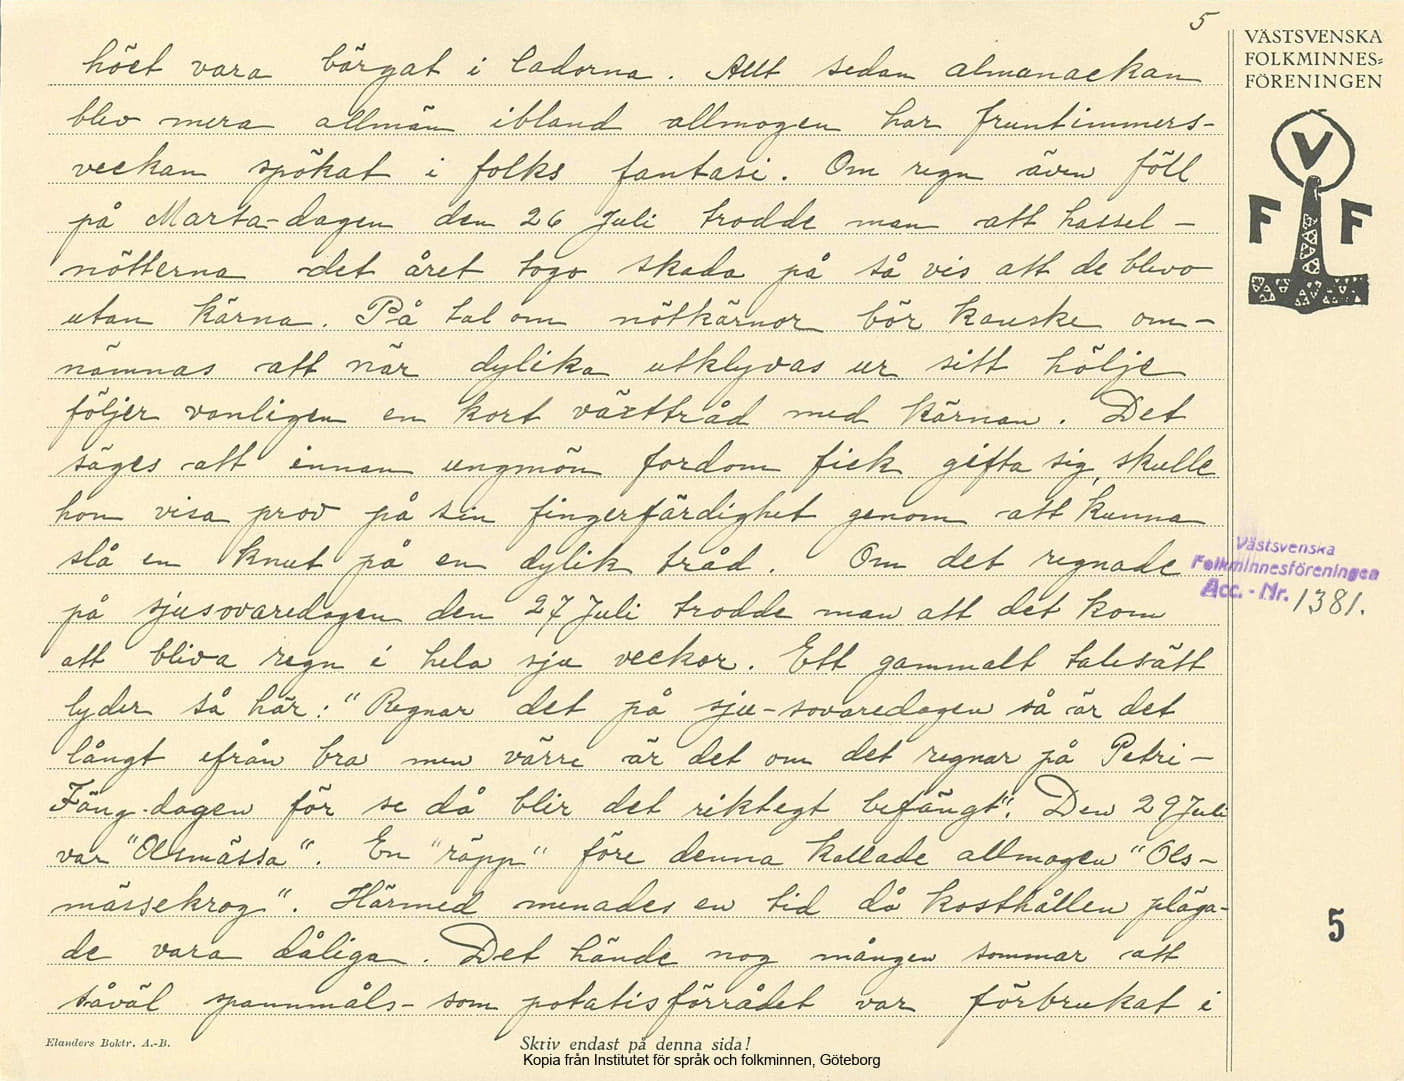 5
VÄSTSVENSKA
FOLKMINNES=
FÖRENINGEN
V
F F
höet vara bärgat i ladorna. Allt sedan almanackan
blev mera allmän ibland allmogen har fruntimmers-
veckan spökat i folks fantasi. Om regn även föll
på Marta-dagen den 26 Juli trodde man att hassel-
nötterna det året togo skada på så vis att de blevo
utan kärna. På tal om nötkärnor bör kanske om-
nämnas att när dylika utklyvas ur sitt hölje
följer vanligen en kort växttråd med kärnan. Det
säges att innan ungmön fordom fick gifta sig, skulle
hon visa prov på sin fingerfärdighet genom att kunna
slå en knut på en dylik tråd. Om det regnade
på sjusovaredagen den 27 Juli trodde man att det kom
att bliva regn i hela sju veckor. Ett gammalt talesätt
lyder så här: "Regnar det på sju-sovaredagen så är det
långt ifrån bra men värre är det om det regnar på Petri-
Fäng-dagen för se då blir det riktigt befängt". Den 29 Juli
var "Olsmässa". En "räpp" före denna kallade allmogen "Ols-
mässekrog". Härmed menades en tid då kosthållen pläga-
de vara dåliga. Det hände nog mången sommar att
såväl spannmåls- som potatisförrådet var förbrukat i
Västsvenska
Folkminnesföreningen
Acc. - Nr. 1381.
5
Elanders Boktr. A.-B.
Skriv endast på denna sida!
Kopia från Institutet för språk och folkminnen, Göteborg